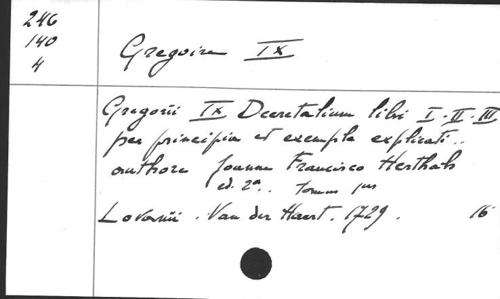 246
140
4
Gregoire IX
Gregorii IX Decretalium libri I-II-III
per principia et exempla explicati..
authore Joanne Francisco Herthals
ed. 2a.. Tomus 1us
Lovanii. Van der Haert. 1729. 16